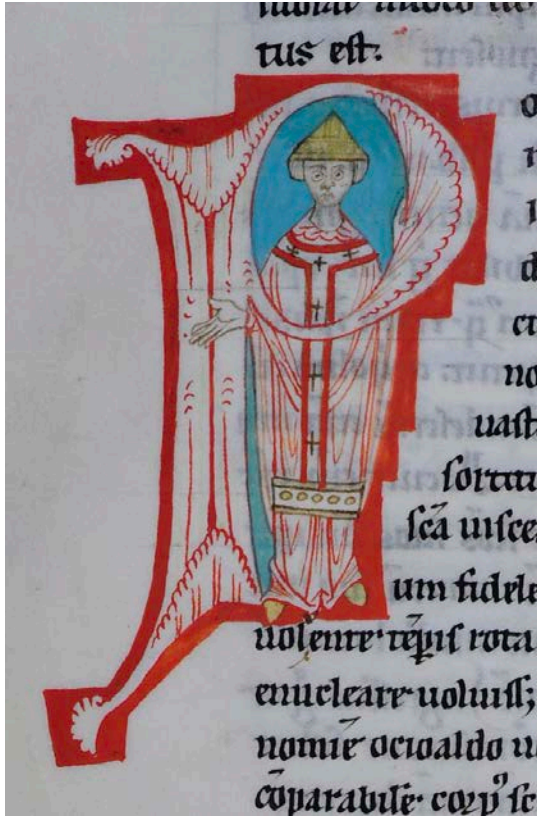 tus est.
P
o
d
ct
no
uast
sortitu
scā uisce
um fidele
uolente tēpis rota
enucleare uoluiss;
nomie ocioaldo u
cōparabile corpꝰ sc